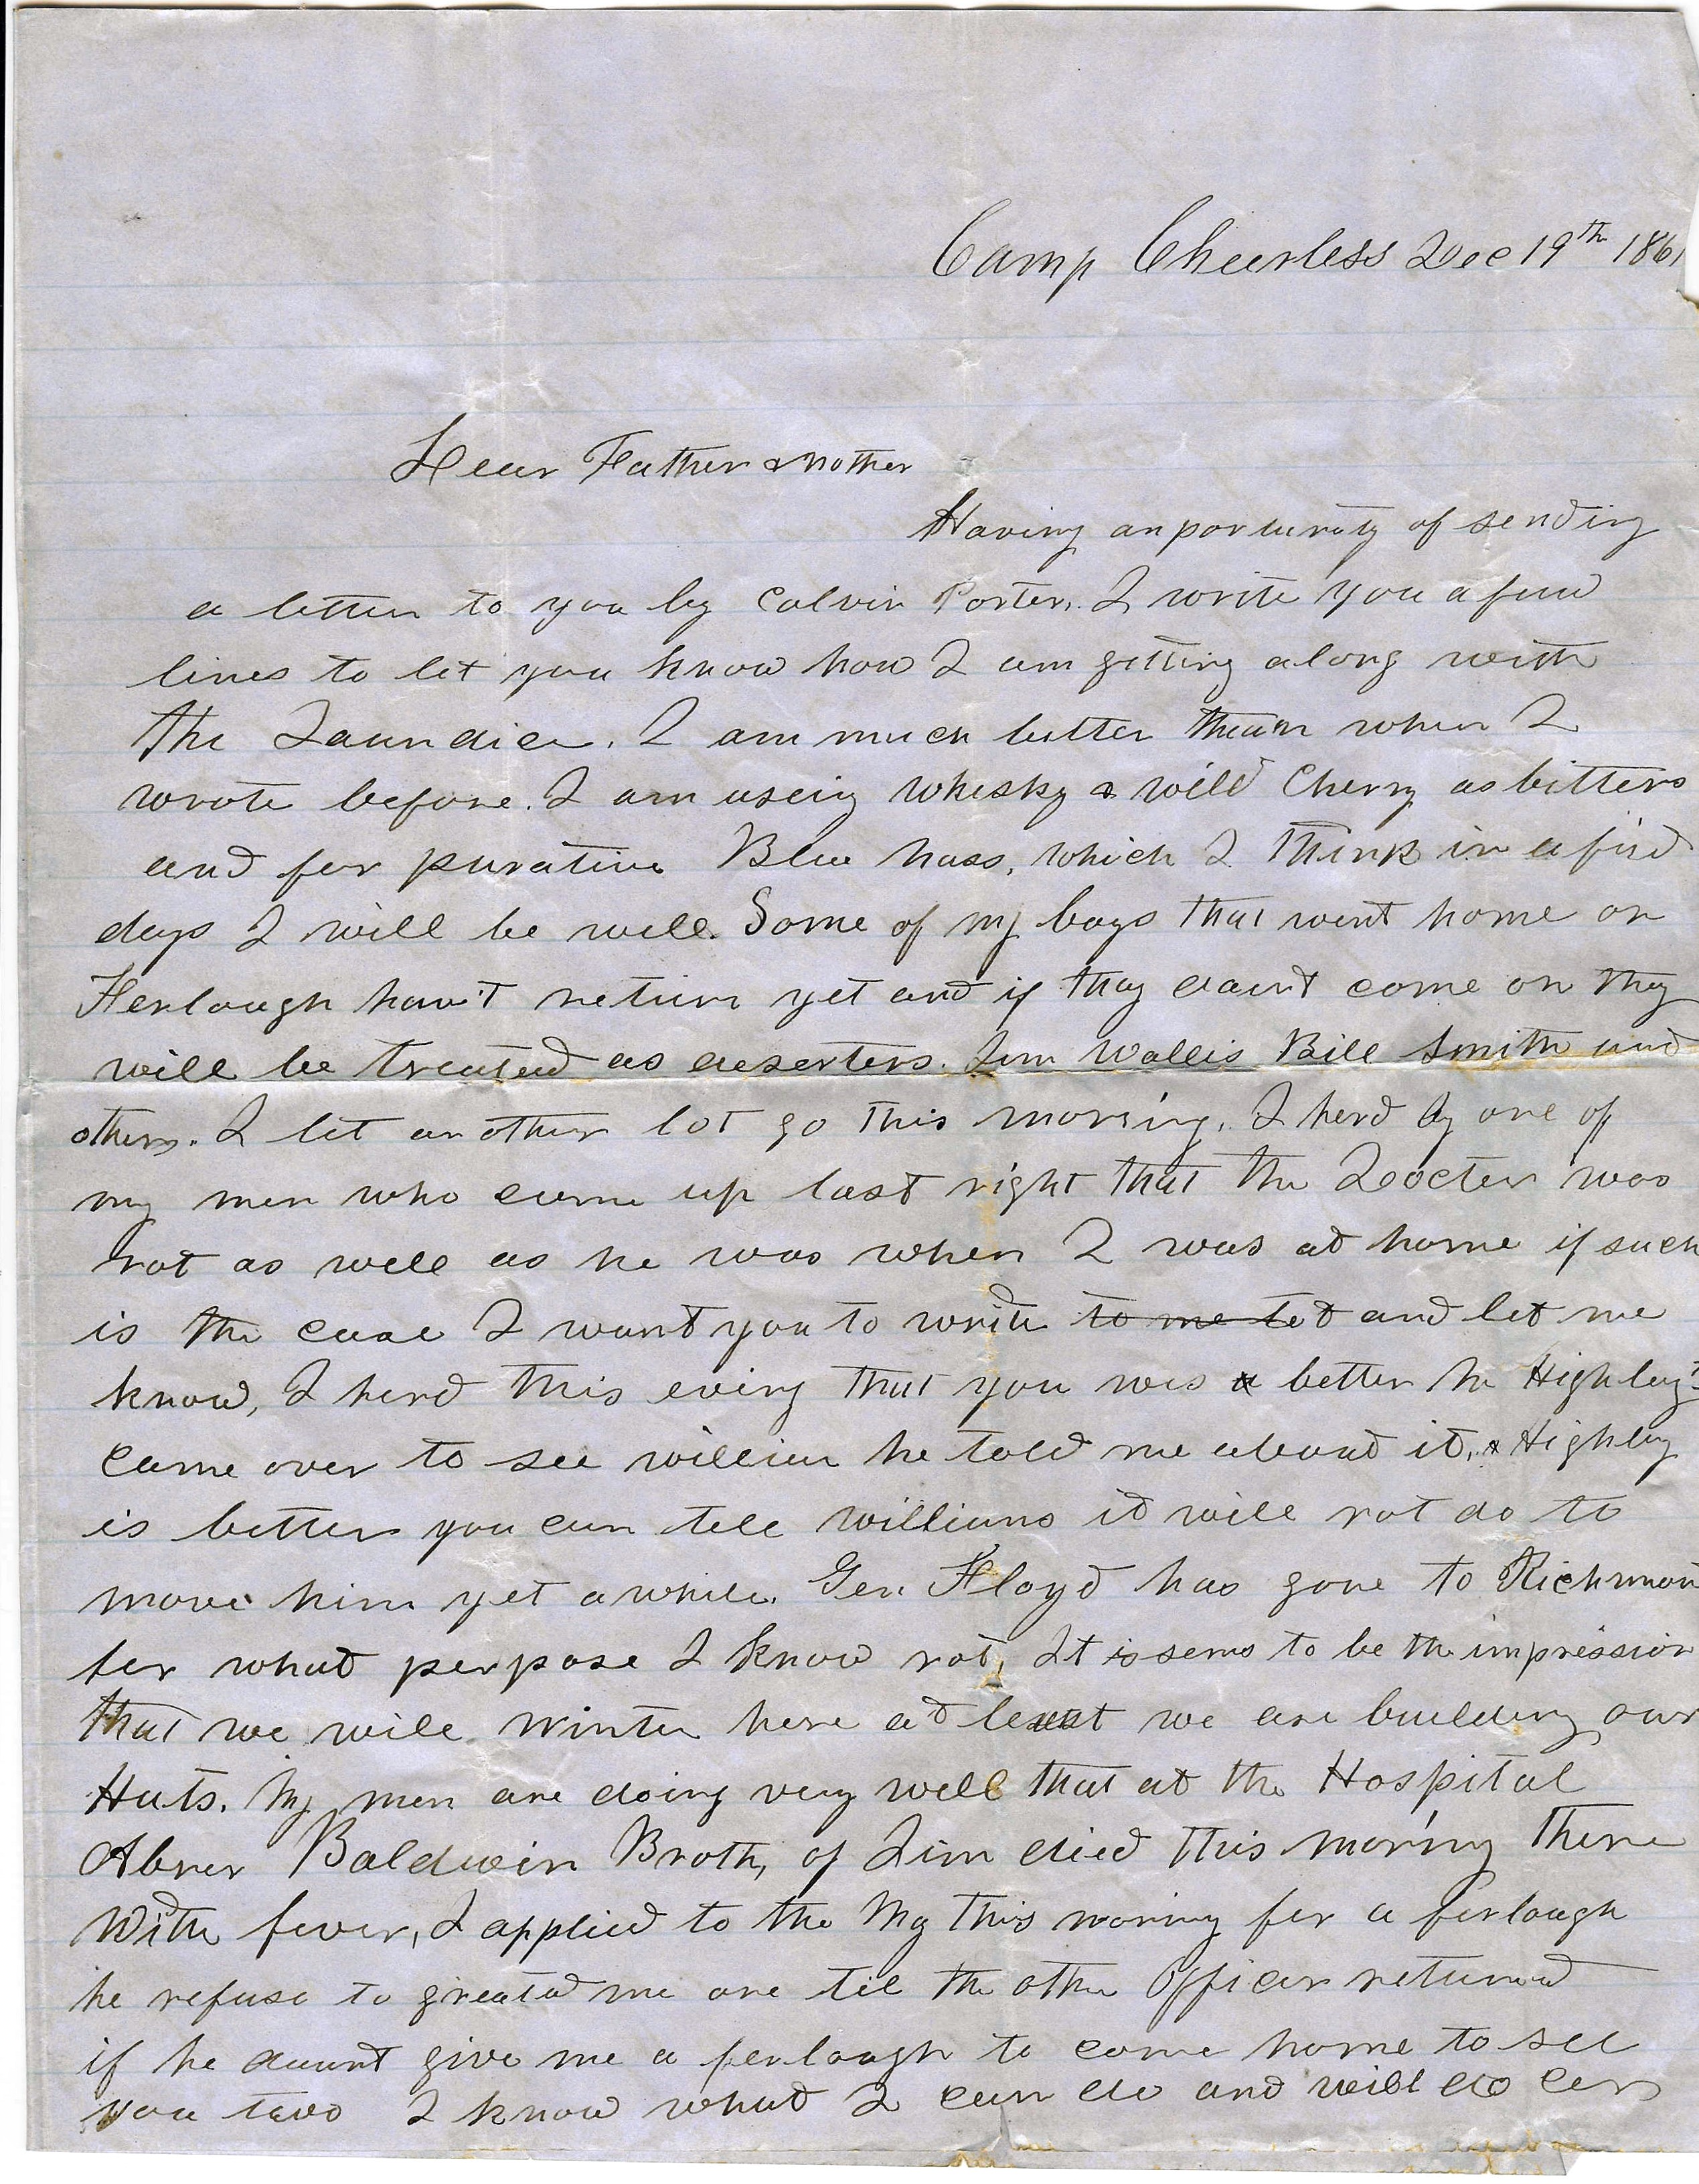 Camp Cheerless Dec 19th 1861
Dear Father & Mother
Having an portunity of sending
a letter to you by Calvin Porter. I write you a few
lines to let you know how I am getting along with
the Jaundice. I am much better than when I
wrote before. I am useing Whisky & wild Cherry as bitters
and for purative Blue Mass, which I think in a few
days I will be well. Some of my boys that went home on
Ferlough hav't return yet and if thay daint come on they
will be treated as deserters. Jim Wallis Bill Smith and
others. I let an other lot go this morning. I herd by one of
my men who came up last night that the Docter was
not as well as he was when I was at home if such
is the case I want you to write to me let and let me
know, I herd this eving that you was better Mr Highley
came over to see william he told me about it, & Highley
is better you can tell williams it will not do to
move him yet awhile. Gen Floyd has gone to Richmon
for what perpose I know not, It is sems to be the impression
that we will winter here at least we are building our
Huts. My men are doing very well that at the Hospital
Abner Baldwin Broth, of Jim died this morning there
with fever, I applied to the Mg this morning for a furlough
he refuse to greated me one till the other officer returned
if he daunt give me a ferlough to come home to see
you two I know what I can do and will do